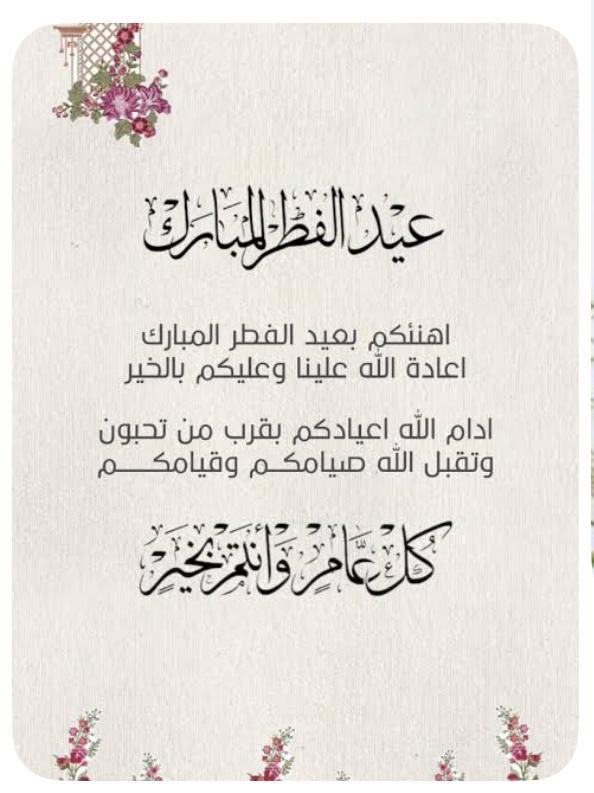 عيد الفطر المبارك
اهنئكم بعيد الفطر المبارك
اعادة الله علينا وعليكم بالخير
ادام الله اعيادكم بقرب من تحبون
وتقبل الله صيامكـم وقيامكـــم
كُلُ عَامٍ وَأَنتُمْ بِخَيْرٍ